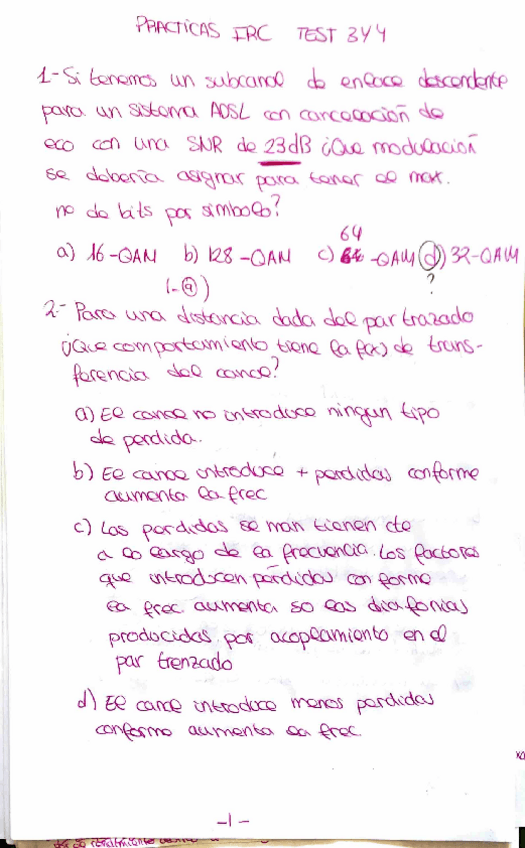 PRACTICAS IRC TEST 3 Y 4
1- Si tenemos un subcanal de enlace descendente
para un sistema ADSL con cancelación de
eco con una SNR de 23dB ¿Que modulación
se debería asignar para tener el max.
no de bits por símbolo?
64
a) 16-QAM b) 128-QAM c) -QAM d) 32-QAM
?
(-a)
2- Para una distancia dada del par trazado
¿Que comportamiento tiene la f(x) de trans-
ferencia del canal?
a) El canal no introduce ningun tipo
de perdida.
b) El canal introduce + perdidas conforme
aumenta la frec
c) Las perdidas se man tienen cte
a lo largo de la frecuencia. Los factores
que introducen pérdidas con forme
la frec aumenta so las diafonias
producidas por acoplamiento en el
par trenzado
d) El canal introduce menos perdidas
conforme aumenta la frec.
-1-